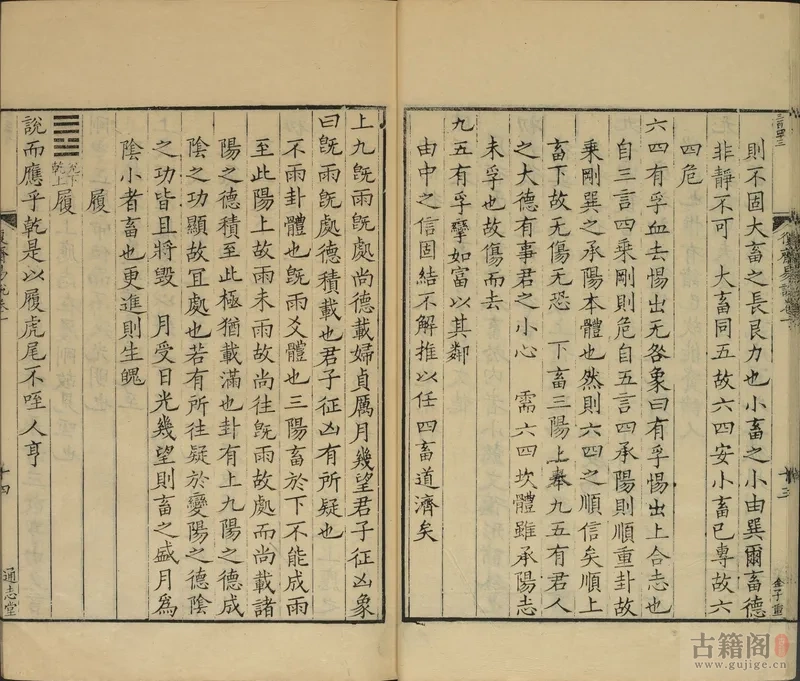 則不固大畜之長艮力也小畜之小由巽爾畜德
非靜不可　大畜同五故六四安小畜已專故六
四危
六四有孚血去惕出无咎象曰有孚惕出上合志也
自三言四乗剛則危自五言四承陽則順重卦故
乗剛巽之承陽本體也然則六四之順信矣順上
畜下故无傷无恐　下畜三陽上奉九五有君人
之大德有事君之小心　需六四坎體雖承陽志
未孚也故傷而去
九五有孚攣如富以其鄰
由中之信固結不解推以任四畜道濟矣
十三
金子重
上九旣雨旣處尚德載婦貞厲月幾望君子征凶象
曰旣雨旣處德積載也君子征凶有所疑也
不雨卦體也旣雨爻體也三陽畜於下不能成雨
至此陽上故雨未雨故尚往旣雨故處而尚載諸
陽之德積至此極猶載滿也卦有上九陽之德成
陰之功顯故宜處也若有所往疑於變陽之德陰
之功皆且將毀　月受日光幾望則畜之盛月爲
陰小者畜也更進則生魄
履
兌下
乾上
履
說而應乎乾是以履虎尾不咥人亨
復齋易說卷一
十四
通志堂
古籍阁
www.gujige.com